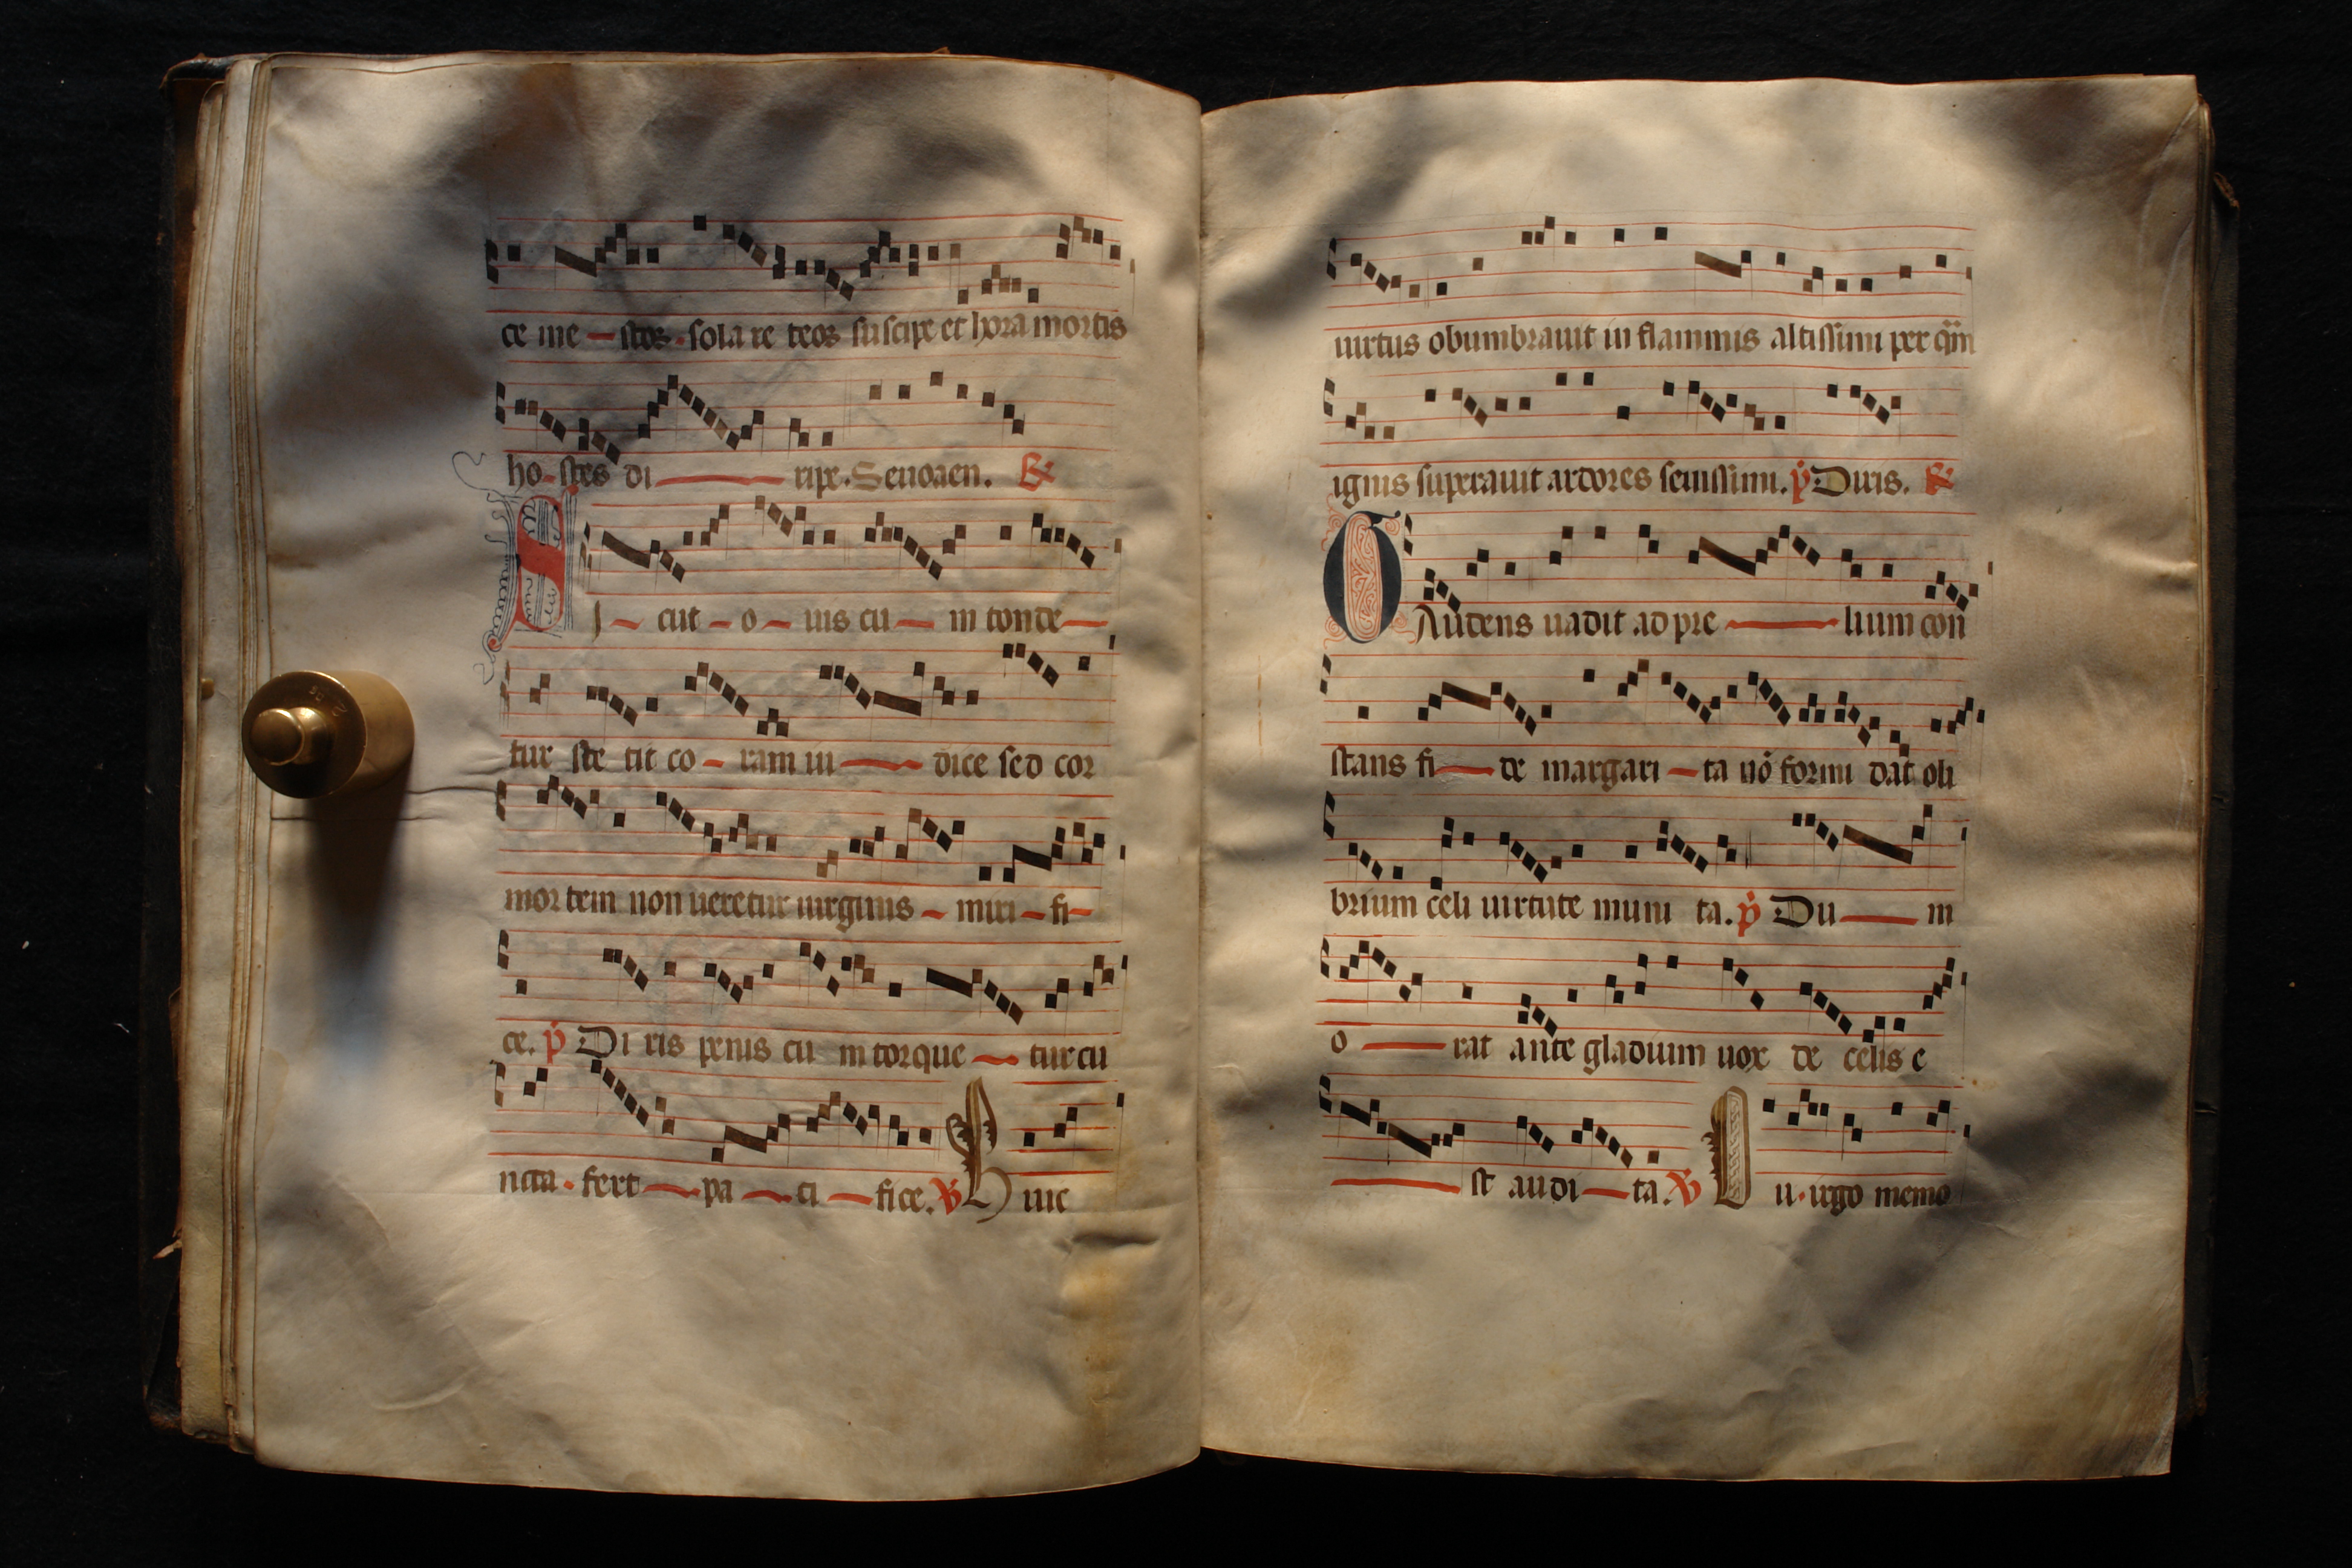 ce me stos · sola re reos suscipe et hora mortis
ho stes di ripe. Seuouaen. R
SI cut o uis cu m tonde
tur ste tit co ram iu dice sed cor
mor tem non ueretur uirginis miri fi
ce. p Di ris penis cu m torque tur cu
ncta · fert pa ci fice. V H uic
uirtus obumbrauit in flammis altissimi per quem
ignis superauit ardores seuissimi. p Diris. R
GAudens uadit ad pre lium con
stans fi de margari ta nō formi dat oli
brium celi uirtute muni ta. p Du m
o rat ante gladium uox de celis e
st audi ta. V I u · uirgo memo